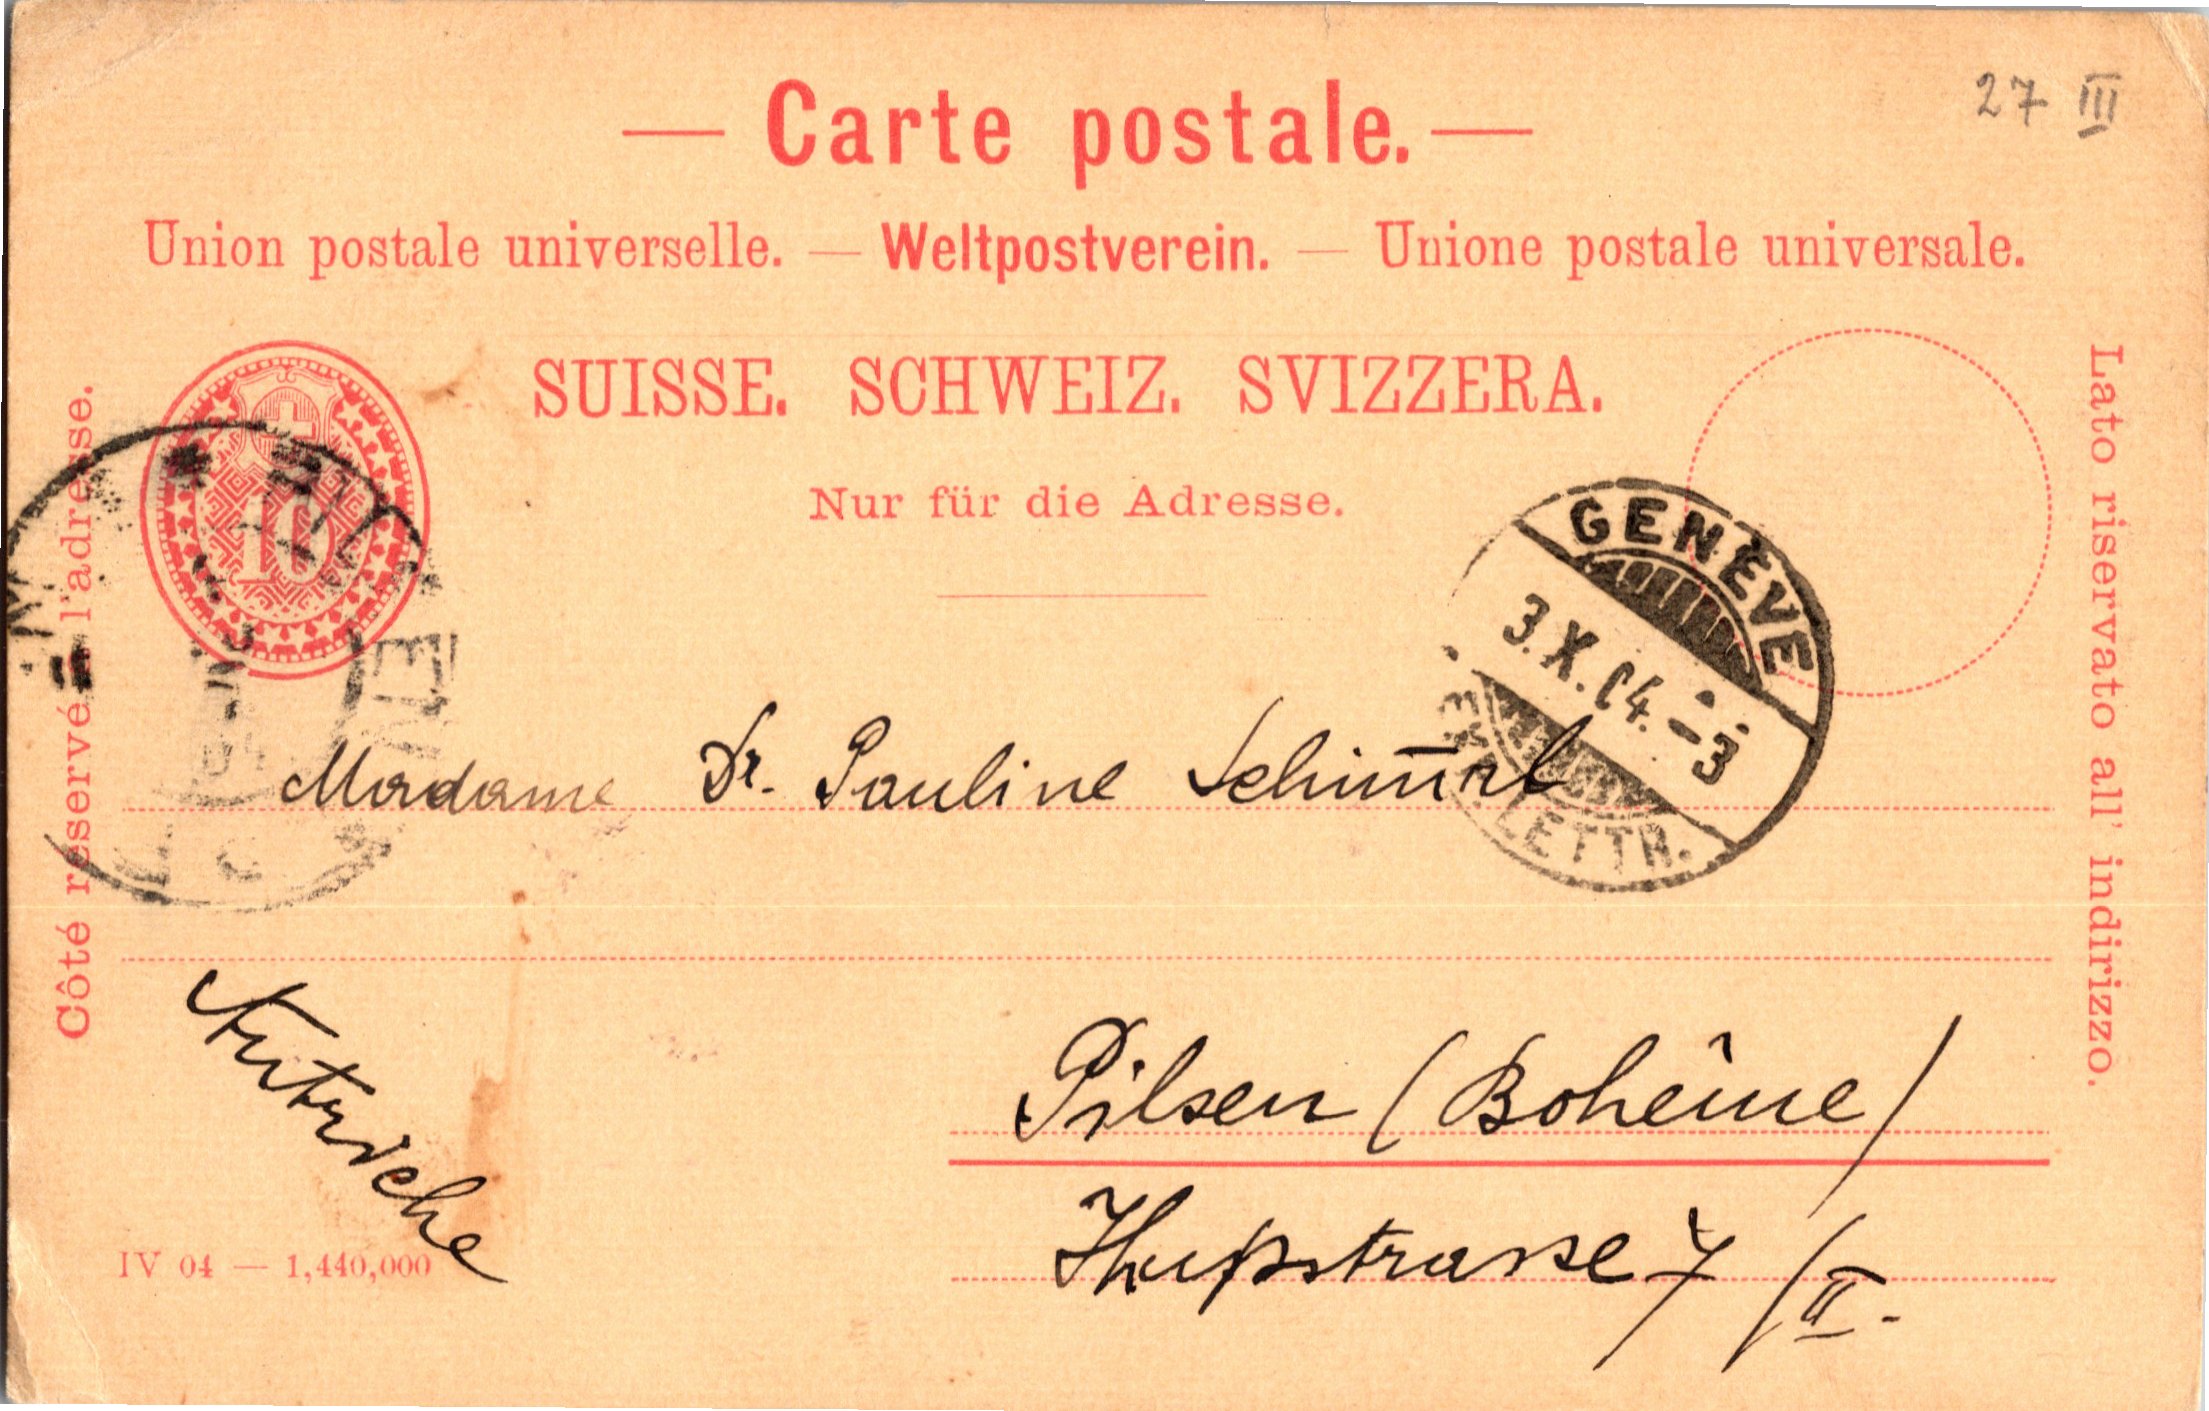 27 III
— Carte postale. —
Union postale universelle. — Weltpostverein. — Unione postale universale.
SUISSE. SCHWEIZ. SVIZZERA.
Nur für die Adresse.
Côté reservé à l'adresse.
Lato riservato all' indirizzo.
10
GENÈVE
3.X.04.-3
LETTR.
Madame Dr. Pauline
Pilsen (Bohême)
7/II.
Autriche
IV 04 — 1,440,000